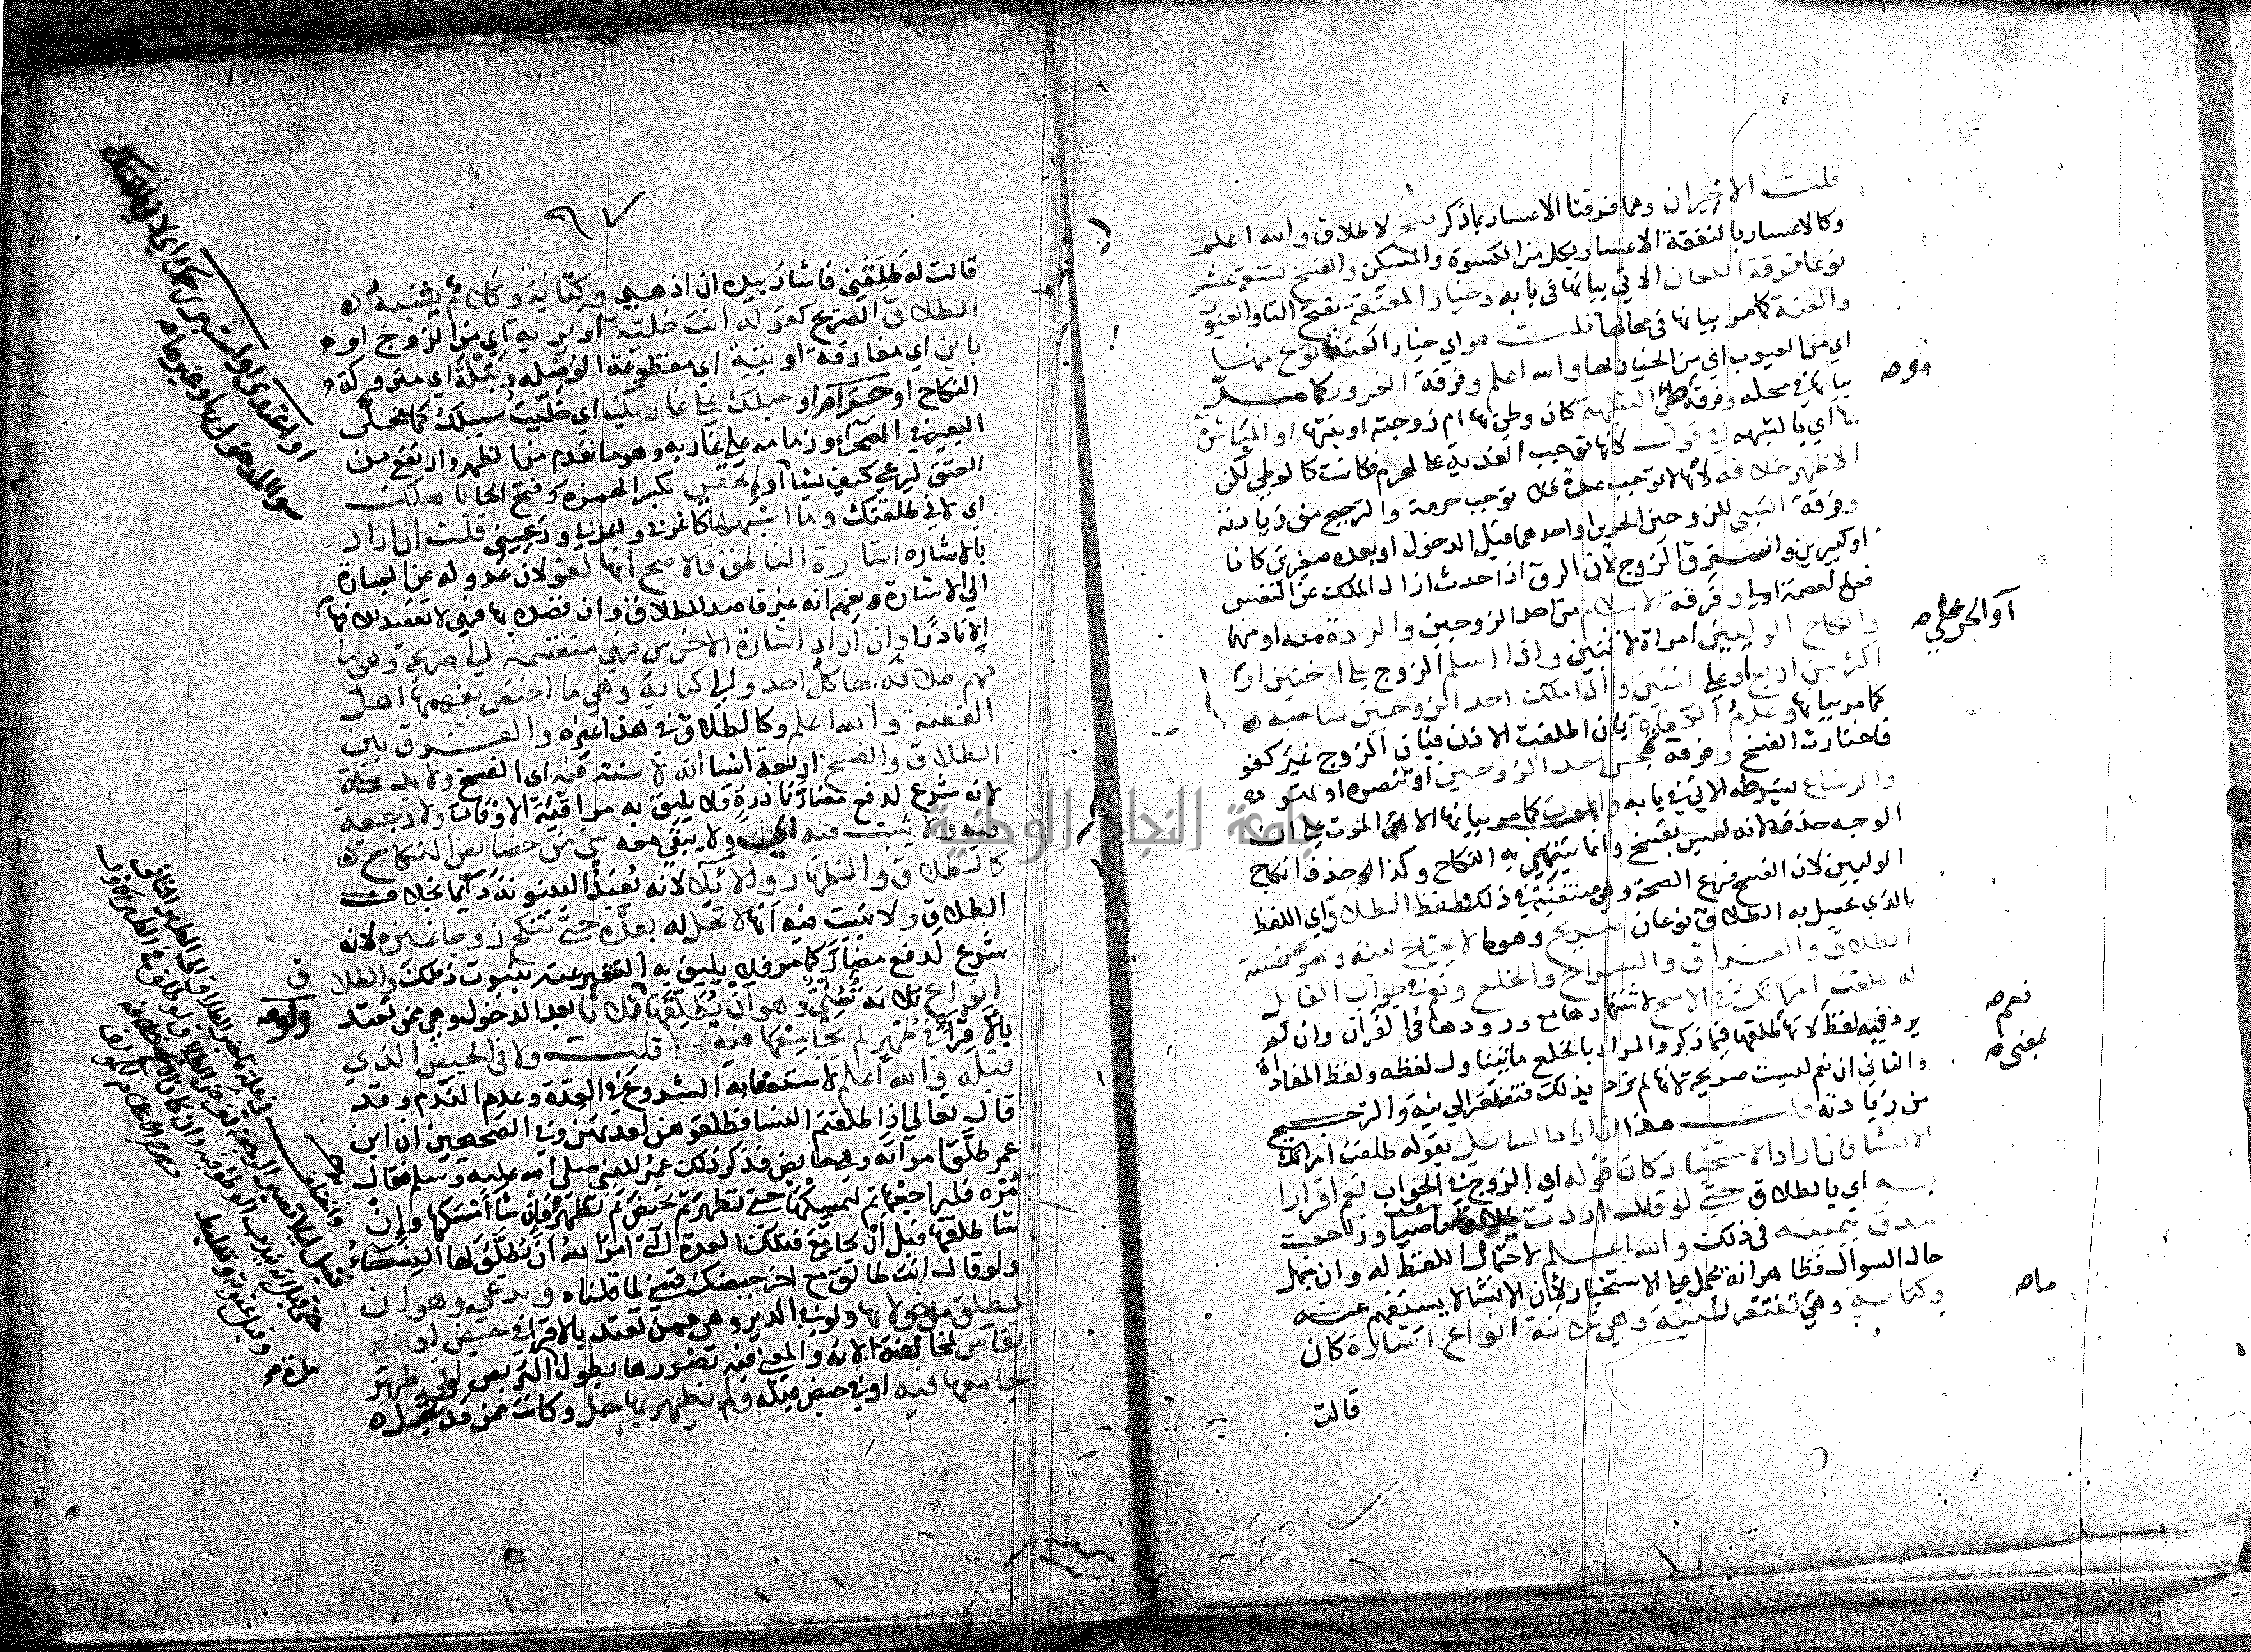 قلت الاخيران وهما فرقتا الاعسار بما ذكر فسخ لا طلاق والله اعلم
وكالاعسار بالنفقة الاعسار بكل من الكسوة والمسكن والفسخ لستة عشر
نوعا فرقة اللعان الاتي بيانها في بابه وخيار المعتقة بفتح التا والعيوب
والعنة كما مر بيانها في محالها قلت هو اي خيار العنة نوع منها
اي من العيوب اي من الخيار لها والله اعلم وفرقة الغرور كما مر
بيانها في محله وفرقة وطئ الشبهة كان وطئ بها ام زوجته او بنتها او المباشرة
بها اي بالشبهة في قول لانها توجب الفدية على المحرم فكانت كالوطئ لكن
الاظهر خلافه لانها لا توجب عدة فلا توجب حرمة والترجيح من زيادته
وفرقة السبي للزوجين الحرين او احدهما قبل الدخول او بعده صغيرين كانا
او كبيرين واسترق الزوج لان الرق اذا حدث ازال الملك عن النفس
فعن العصمة اولى وفرقة الاسلام من احد الزوجين والردة منه او منهما
وانكاح الوليين امراة لاثنين واذا اسلم الزوج على اختين او
اكثر من اربع او على امتين واذا ملك احد الزوجين صاحبه
كما مر بيانها وعدم الكفاءة بان اطلقت الاذن فبان الزوج غير كفو
فاختارت الفسخ وفرقة تمجس احد الزوجين او تنصره او تهوده
والرضاع بشرطه الاتي في بابه والموت كما مر بيانها الا في الموت على ان
الوجه حذفه لانه ليس بفسخ وانما ينتهي به النكاح وكذا حذف انكاح
الوليين لان الفسخ فرع الصحة وهي منتفية في ذلك ولفظ الطلاق اي اللفظ
الذي يحصل به الطلاق نوعان صريح وهو ما لا يحتاج لنية وهو خمسة
الطلاق والفراق والسراح والخلع ونعم في جواب القائل
له طلقت امراتك في الاصح لاشتهارها مع ورودها في القران وان لم
يرد فيه لفظ لانها طلقتها فيما ذكر والمراد بالخلع ما يتناول لفظه ولفظ المفاداة
والثاني ان نعم ليست صريحة لانها لم ترد بذلك فتفتقر الى نية والترجيح
من زيادته قلت هذا ان اراد السايل بقوله طلقت امراتك
الانشا فان اراد الاستخبار كان قوله اي الزوج في الجواب نعم اقرارا
به اي بالطلاق حتى لو قال اردت طلاقا ماضيا وراجعت
صدق بيمينه في ذلك والله اعلم لاحتمال اللفظ له وان جهل
حال السوال فظاهر انه يحمل على الاستخبار لان الانشا لا يستفهم عنه
وكناية وهي تفتقر للنية وهي ثلاثة انواع اشارة كان
قالت
او الحربي صح
نعم صح
بمعنى صح
ما صح
٦٧
قالت له طلقني فاشار بيده ان اذهبي وكتابة وكلام يشبه
الطلاق الصريح كقوله انت خلية او برية اي من الزوج او
باين اي مفارقة او بتة اي مقطوعة الوصلة وبتلة اي متروكة
النكاح او حرام او حبلك على غاربك اي خليت سبيلك كما يخلى
البعير في الصحراء وزمامه على غاربه وهو ما تقدم من الظهر وارتفع من
العنق ليرعى كيف شا او الحقي بكسر الهمزة وفتح الحا باهلك
اي لاني طلقتك وما اشبهها كاغربي واعزبي ودعيني قلت ان اراد
بالاشارة اشارة الناطق فالاصح انها لغو لان عدوله عن العبارة
الى الاشارة يفهم انه غير قاصد للطلاق وان قصده بها فهي لا تقصد للافهام
الا نادرا وان اراد اشارة الاخرس فهي منقسمة الى صريح وهي ما
فهم طلاقه بها كل احد والى كناية وهي ما اختص بفهمها اهل
الفطنة والله اعلم وكالطلاق في هذا غيره والفرق بين
الطلاق والفسخ اربعة اشيا انه لا سنة فيه اي الفسخ ولا بدعة
لانه شرع لدفع مضار نادرة فلا يليق به مراقبة الاوقات ولا رجعة
فيه ولا يثبت فيه ولا يبقى معه شي من خصايص النكاح
كالطلاق والظهار والايلا لانه يفيد البينونة دايما بخلاف
الطلاق ولا يثبت فيه انها لا تحل له بعده حتى تنكح زوجا غيره لانه
شرع لدفع مضار كما مر فلا يليق به التغير عنه بثبوت ذلك والطلاق
انواع ثلاثة سني وهو ان يطلقها ثلاثا بعد الدخول وهي ممن تعتد
بالاقراء في طهر لم يجامعها فيه قلت ولا في الحيض الذي
قبله والله اعلم لاستعقابه الشروع في العدة وعدم الندم وقد
قال تعالى اذا طلقتم النسا فطلقوهن لعدتهن وفي الصحيحين ان ابن
عمر طلق امراته وهي حايض فذكر ذلك عمر للنبي صلى الله عليه وسلم فقال
مره فليراجعها ثم ليمسكها حتى تطهر ثم تحيض ثم تطهر فان شا امسكها وان
شا طلقها قبل ان يجامع فتلك العدة التي امر الله ان تطلق لها النساء
ولو قال انت طالق مع اخر حيضك فسني لما قلناه وبدعي وهو ان
يطلق مدخولا بها ولو في الدبر وهي ممن تعتد بالاقرا في حيض او
نفاس لمخالفة الاية والمعنى فيه تضررها بطول التربص او في طهر
جامعها فيه او في حيض قبله ولم يظهر بها حمل وكانت ممن قد تحبل
او اعتدي او استبري رحمك اي لاني طلقتك
سوا المدخول بها وغيرها صح
ولو صح